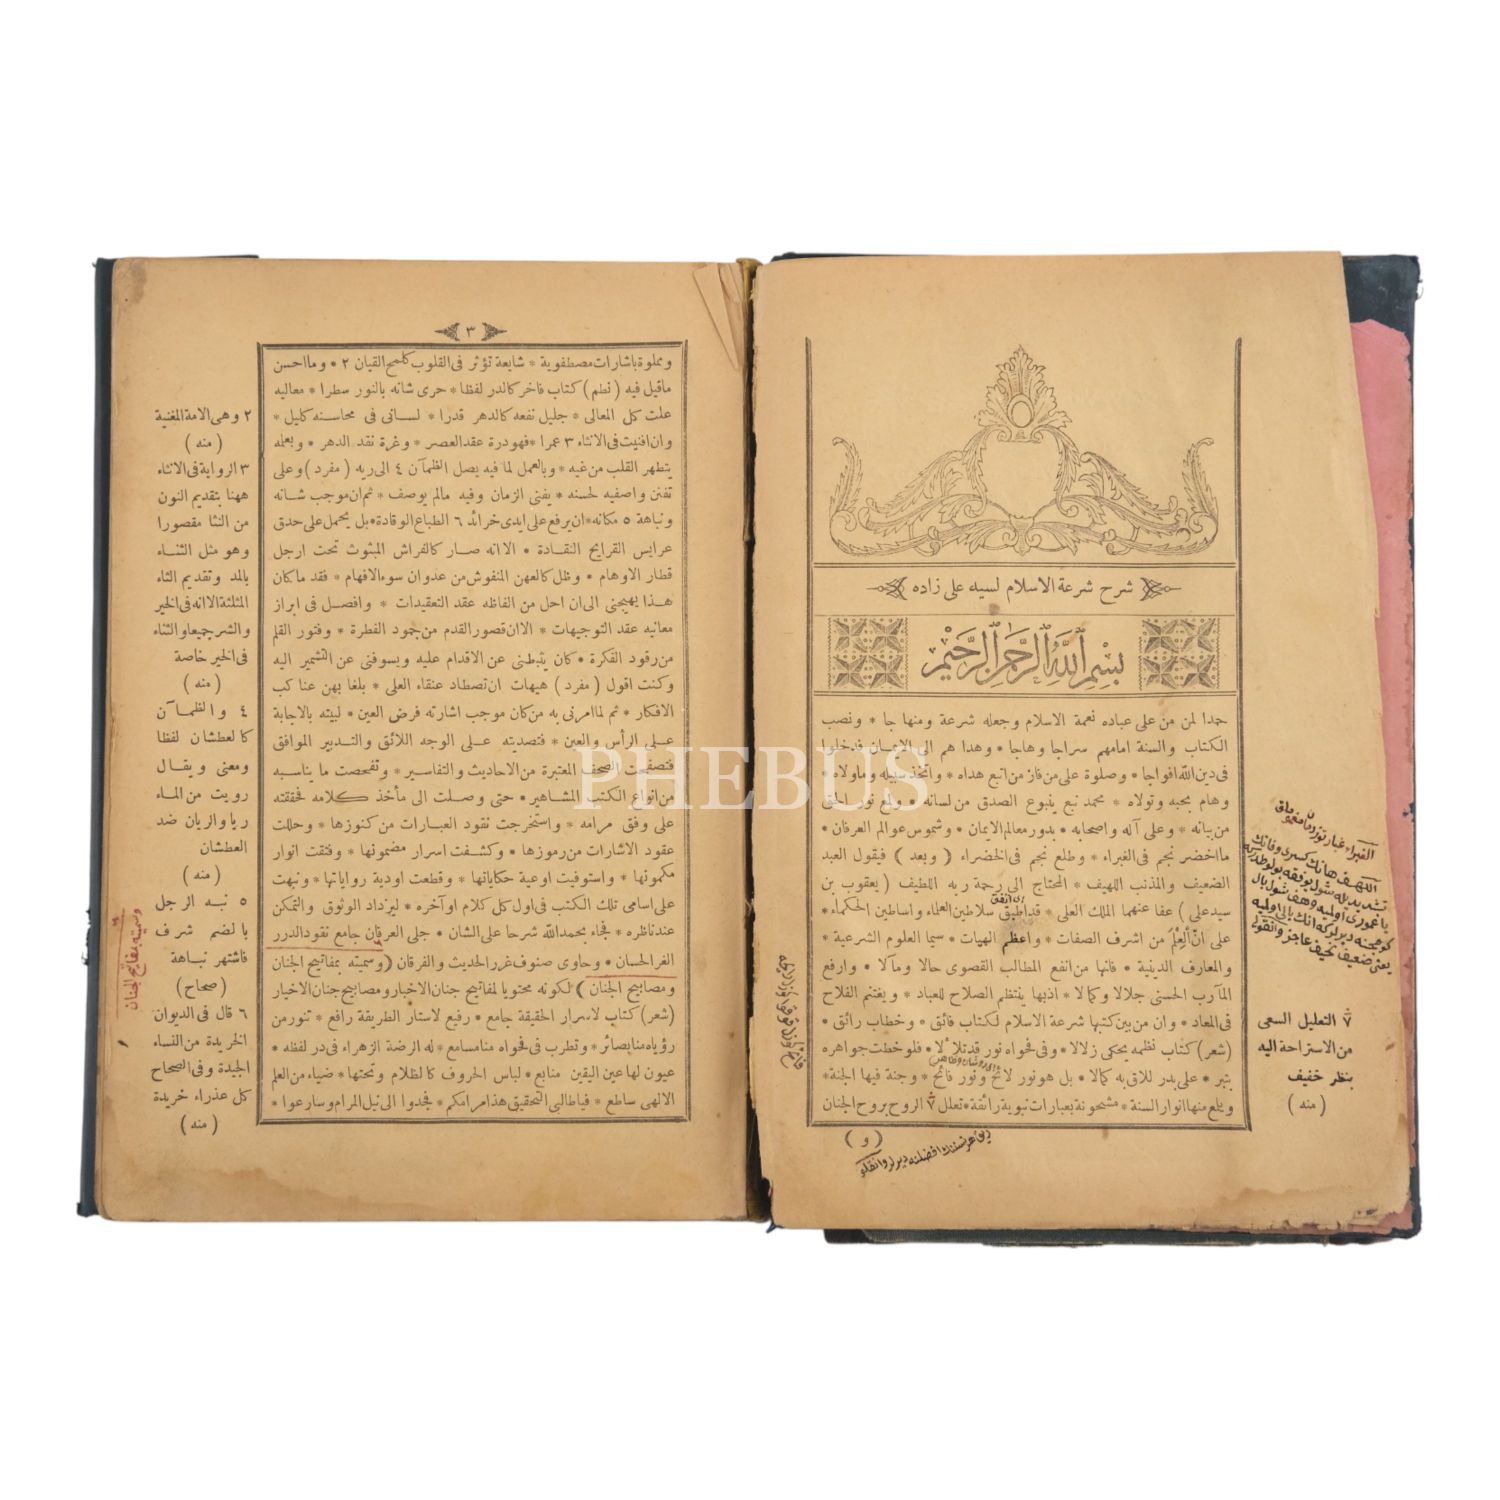 شرح شرعة الاسلام لسيد على زاده
بِسْمِ ٱللَّهِ ٱلرَّحْمَٰنِ ٱلرَّحِيْمِ
حمدا لمن من على عباده نعمة الاسلام وجعله شرعة ومنها جا * ونصب
الكتاب والسنة امامهم سراجا وهاجا * وهدا هم الى الايمان فدخلوا
فى دين الله افواجا * وصلوة على من فاز من اتبع هداه * واتخذ سبيله وماولاه *
وهام بحبه وتولاه * محمد نبع ينبوع الصدق من لسانه * ولمع نور الحق
من بيانه * وعلى آله واصحابه * بدور معالم الايمان * وشموس عوالم العرفان *
ما اخضر نجم فى الغبراء * وطلع نجم فى الخضراء ( وبعد ) فيقول العبد
الضعيف والمذنب اللهيف * المحتاج الى رحمة ربه اللطيف ( يعقوب بن
سيد على ) عفا عنهما الملك العلى * قد اطبق سلاطين العلماء واساطين الحكماء *
على انّ العِلْمَ من اشرف الصفات * واعظم الهيات * سيما العلوم الشرعية *
والمعارف الدينية * فانها من انفع المطالب القصوى حالا ومآلا * وارفع
المآرب الحسنى جلالا وكمالا * اذبها ينتظم الصلاح للعباد * ويغتنم الفلاح
فى المعاد * وان من بين كتبها شرعة الاسلام لكتاب فائق * وخطاب رائق *
( شعر ) كتاب نظمه يحكى زلالا * وفى فحواه نور قد تلا ٔلا * فلو خطت جواهره
بتبر * على بدر للاق به كمالا * بل هو نور لائح ونور فائح * وجنة فيها الجنة *
ويلع منها انوار السنة * مشحونة بعبارات نبوية رائقة * تعلل ٧ الروح بروح الجنان
( و )
٧ التعليل السعى
من الاستراحة اليه
بنظر خفيف
( منه )
٣
ومملوة باشارات مصطفوية * شايعة تؤثر فى القلوب كلمح القيان ٢ * وما احسن
ماقيل فيه ( نظم ) كتاب فاخر كالدر لفظا * حرى شانه بالنور سطرا * معاليه
علت كل المعالى * جليل نفعه كالدهر قدرا * لسانى فى محاسنه كليل *
وان افنيت فى الانثاء ٣ عمرا * فهو درة عقد العصر * وغرة نقد الدهر * وبعلمه
يتطهر القلب من غيه * وبالعمل لما فيه يصل الظمآن ٤ الى ريه ( مفرد ) وعلى
تفنن واصفيه لحسنه * يفنى الزمان وفيه مالم يوصف * ثم ان موجب شانه
ونباهة ٥ مكانه * ان يرفع على ايدى خرائد ٦ الطباع الوقادة * بل يحمل على حدق
عرايس القرايح النقادة * الا انه صار كالفراش المبثوث تحت ارجل
قطار الاوهام * وظل كالعهن المنفوش من عدوان سوء الافهام * فقد ما كان
هذا يهيجنى الى ان احل من الفاظه عقد التعقيدات * وافصل فى ابراز
معانيه عقد التوجيهات * الا ان قصور القدم من جمود الفطرة * وفتور القلم
من رقود الفكرة * كان يثبطنى عن الاقدام عليه ويسوفنى عن التشمير اليه
وكنت اقول ( مفرد ) هيهات ان تصطاد عنقاء العلى * بلعا بهن عنا كب
الافكار * ثم لما امرنى به من كان موجب اشارته فرض العين * لبيته بالاجابة
على الرأس والعين * فتصديته على الوجه اللائق والتدبير الموافق
فتصفحت الصحف المعتبرة من الاحاديث والتفاسير * وتفحصت ما يناسبه
من انواع الكتب المشاهير * حتى وصلت الى مأخذ كلامه فحققته
على وفق مرامه * واستخرجت نقود العبارات من كنوزها * وحللت
عقود الاشارات من رموزها * وكشفت اسرار مضمونها * وفتقت انوار
مكمونها * واستوفيت اوعية حكاياتها * وقطعت اودية رواياتها * ونبهت
على اسامى تلك الكتب فى اول كل كلام او آخره * ليزداد الوثوق والتمكن
عند ناظره * فجاء بحمد الله شرحا على الشان * جلى العرفان جامع نقود الدرر
الغر الحسان * وحاوى صنوف غرر الحديث والفرقان ( وسميته بمفاتيح الجنان
ومصابيح الجنان ) لكونه محتويا لمفاتيح جنان الاخبار ومصابيح جنان الاخيار
( شعر ) كتاب لاسرار الحقيقة جامع * رفيع لاستار الطريقة رافع * تنور من
رؤياه منا بصائر * وتطرب فى فحواه منا مسامع * له الرضة الزهراء فى در لفظه *
عيون لها عين اليقين منابع * لباس الحروف كالظلام وتحتها * ضياء من العلم
الالهى ساطع * فيا طالبى التحقيق هذا مرامكم * فجدوا الى نيل المرام وسارعوا *
٢ وهى الامة المغنية
( منه )
٣ الرواية فى الانثاء
ههنا بتقديم النون
من النثا مقصورا
وهو مثل الثناء
بالمد وتقديم الثاء
المثلثة الا انه فى الخير
والشر جميعا والثناء
فى الخير خاصة
( منه )
٤ والظمآن
كالعطشان لفظا
ومعنى ويقال
رويت من الماء
ريا والريان ضد
العطشان
( منه )
٥ نبه الرجل
بالضم شرف
فاشتهر نباهة
( صحاح )
٦ قال فى الديوان
الخريدة من النساء
الجيدة وفى الصحاح
كل عذراء خريدة
( منه )
وسميته بمفاتيح الجنان
PHEBUS